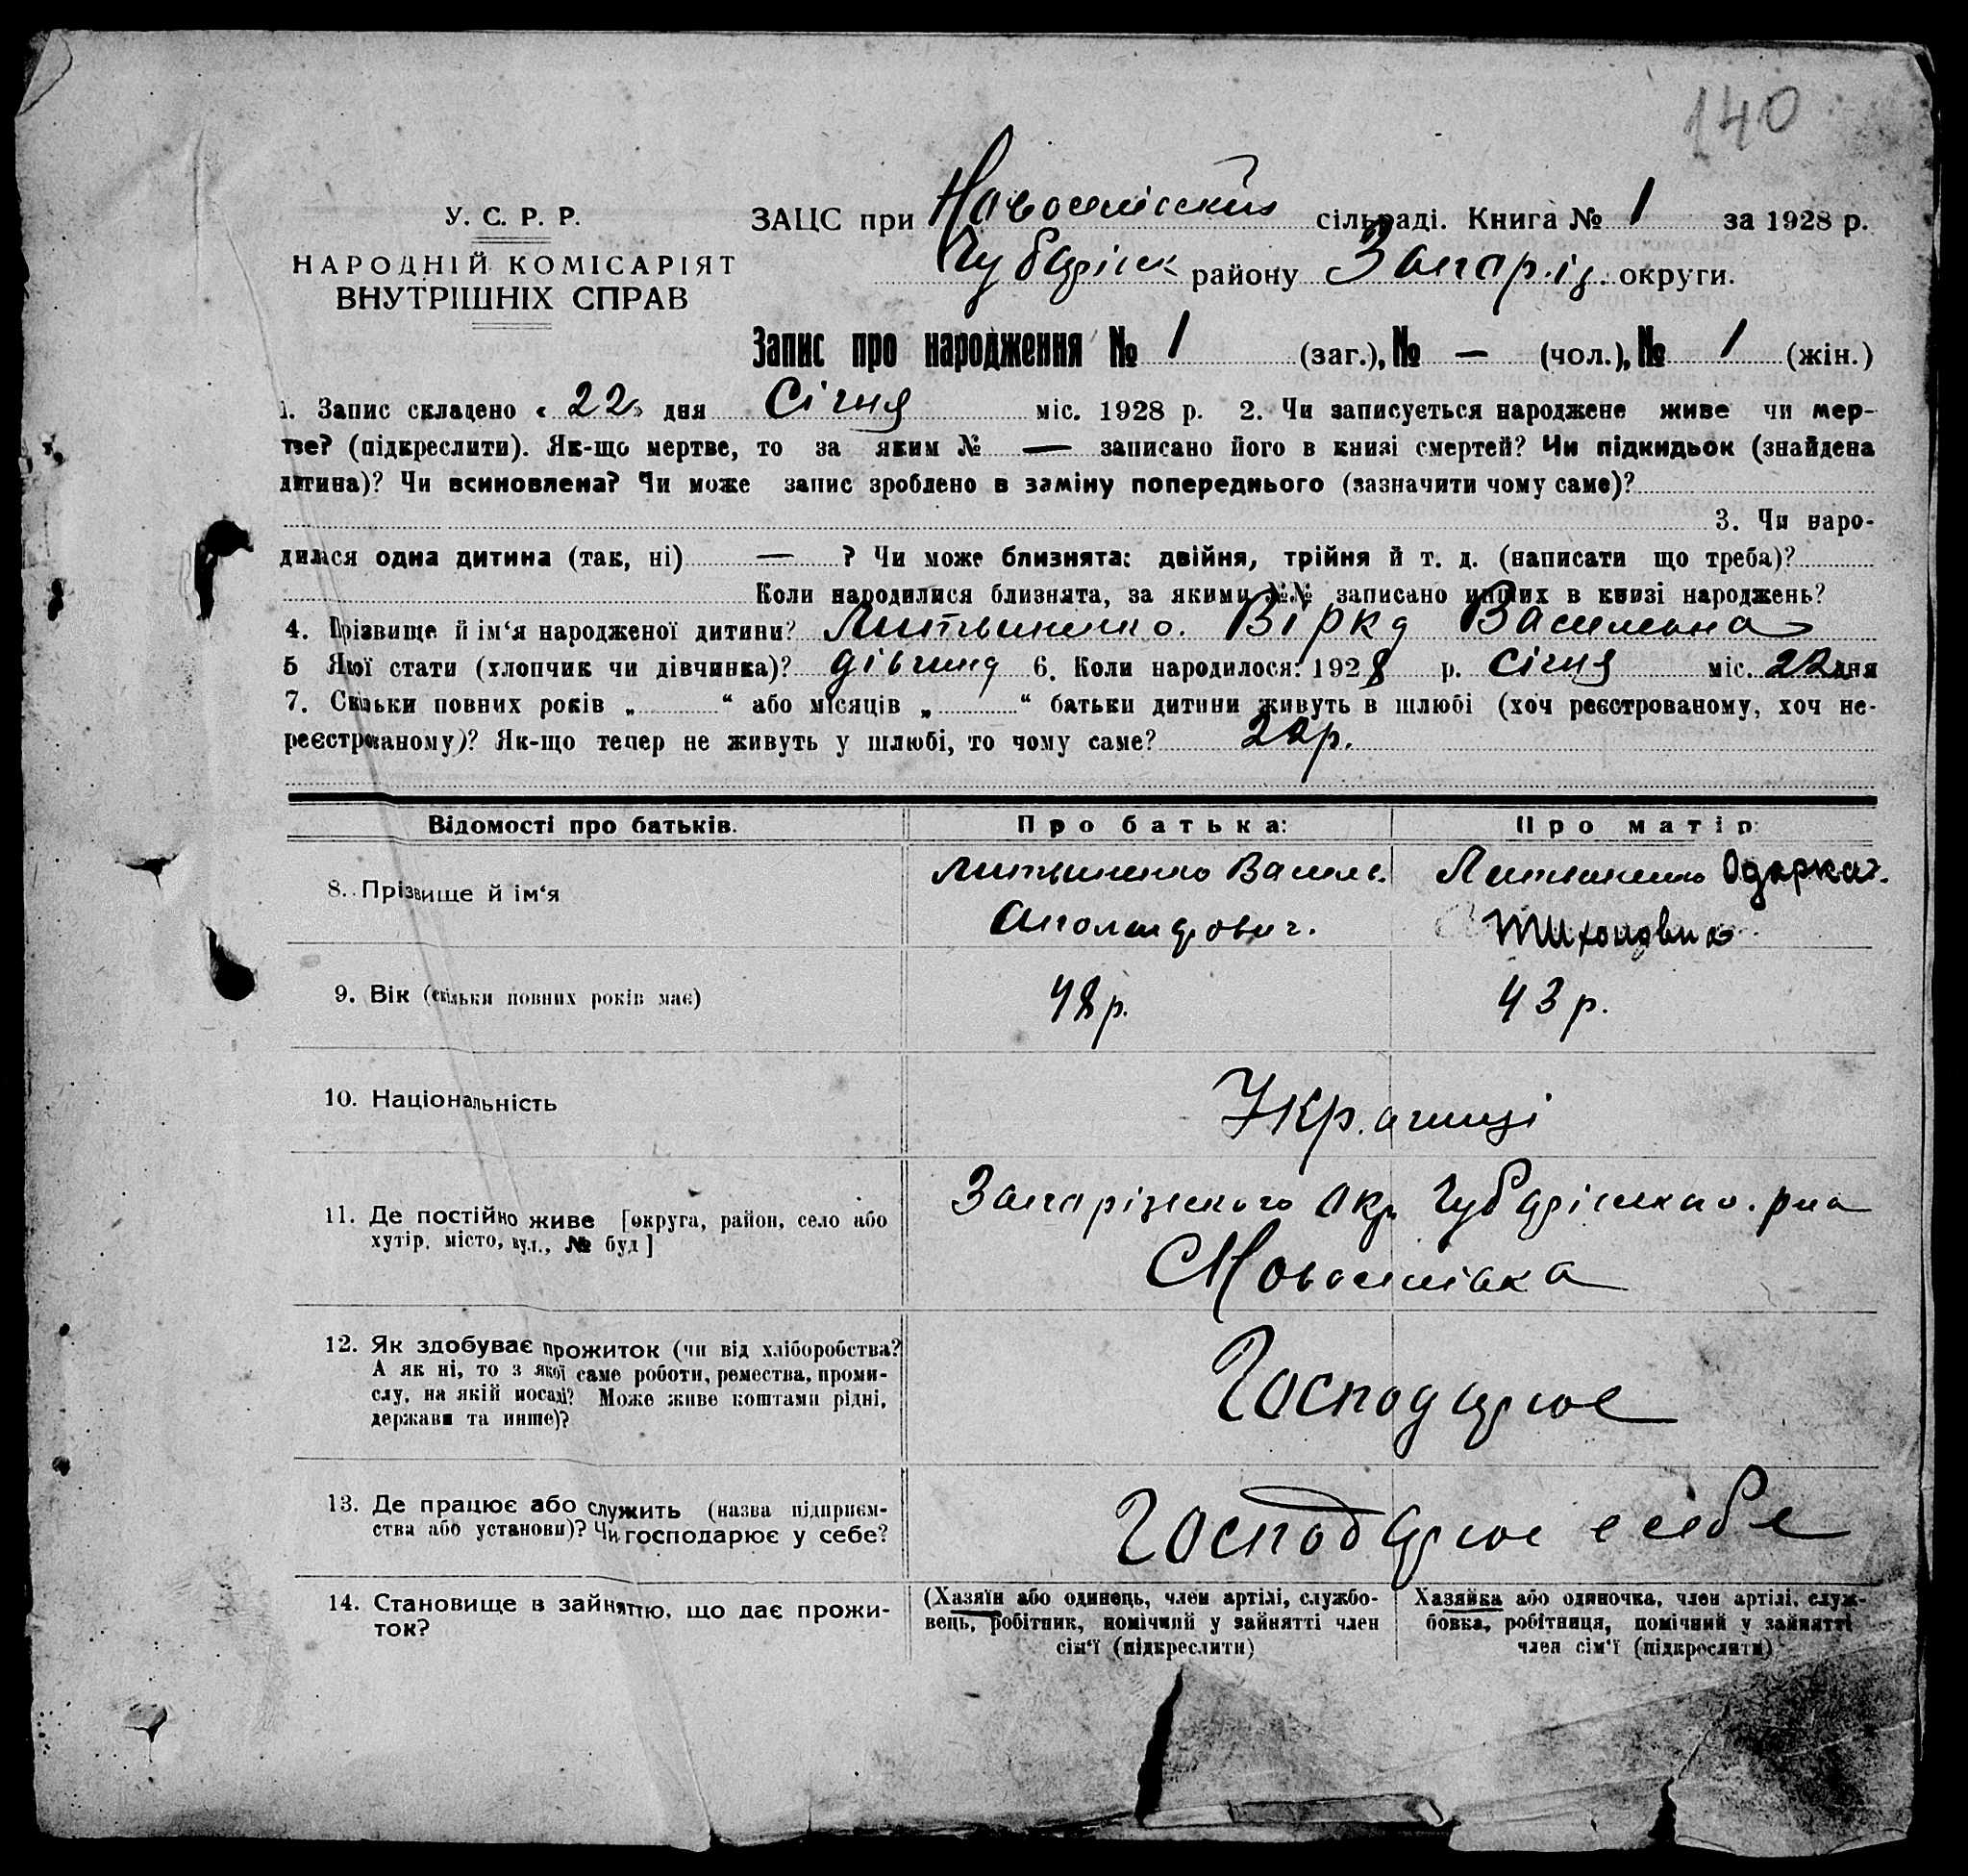 140
У. С. Р. Р.
НАРОДНІЙ КОМІСАРІЯТ
ВНУТРІШНІХ СПРАВ
ЗАЦС при сільраді. Книга № 1 за 1928 р.
району округи.
Запис про народження № 1 (заг.), № — (чол.), № 1 (жін.)
1. Запис складено « 22 » дня Січня міс. 1928 р. 2. Чи записується народжене живе чи мер-
тве? (підкреслити). Як-що мертве, то за яким № — записано його в книзі смертей? Чи підкидьок (знайдена
дитина)? Чи всиновлена? Чи може запис зроблено в заміну попереднього (зазначити чому саме)?
3. Чи наро-
дилася одна дитина (так, ні) — ? Чи може близнята: двійня, трійня й т. д. (написати що треба)?
Коли народилися близнята, за якими №№ записано инших в книзі народжень?
4. Прізвище й ім‘я народженої дитини? Литвиненко. Вірка Васильвна
5 Якої стати (хлопчик чи дівчинка)? дівчина 6. Коли народилося: 1928 р. січня міс. 22 дня
7. Скільки повних років „ “ або місяців „ “ батьки дитини живуть в шлюбі (хоч реєстрованому, хоч не-
реєстрованому)? Як-що тепер не живуть у шлюбі, то чому саме? р.
Відомості про батьків. Про батька: Про матір:
8. Прізвище й ім‘я Литвиненко Василь. Литвиненко Одарка
9. Вік (скільки повних років має) 48 р. 43 р.
10. Національність
11. Де постійно живе [округа, район, село або
хутір, місто, вул., № буд]
Новоселівка
12. Як здобуває прожиток (чи від хліборобства?
А як ні, то з якої саме роботи, ремества, проми-
слу, на якій посаді? Може живе коштами рідні,
держави та инше)?
Господарює
13. Де працює або служить (назва підприєм-
ства або установи)? Чи господарює у себе?
Господарює в себе
14. Становище в зайняттю, що дає прожи-
ток?
(Хазяїн або одинець, член артілі, службо-
вець, робітник, помічний у зайнятті член
сім‘ї (підкреслити)
Хазяйка або одиночка, член артілі, служ-
бовка, робітниця, помічний у зайнятті
член сім‘ї (підкреслити)